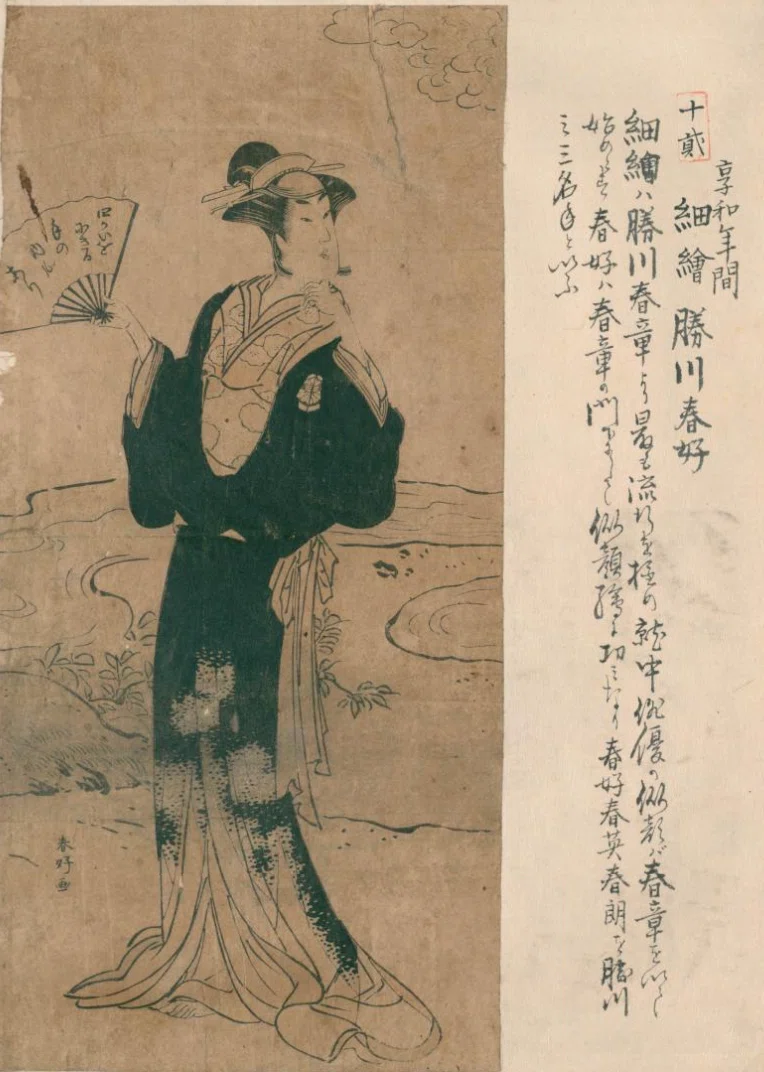 十貳
享和年間
細繪 勝川春好
細繪ハ勝川春章より最も流行を極め就中俳優の似顔ハ春章を以て
始めとす 春好ハ春章の門下にして似顔繪に功ミなり 春好春英春朗を勝川
ミ三名手といふ
春好画